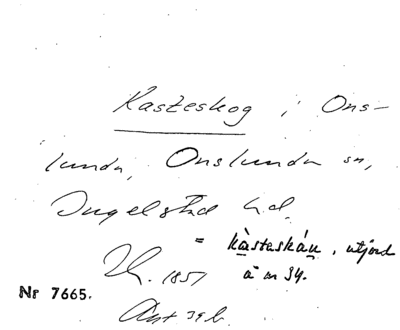 Kasteskog i Ons-
lunda, Onslunda sn,
Ingelstad hd.
= kàstaskáu, utjord
å n 34.
1851
Nr 7665.
Ant 39 b.